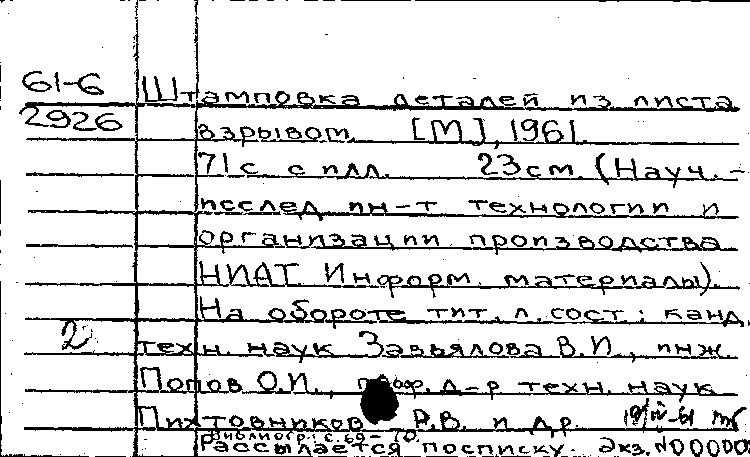 61-6
2926
Штамповка деталей из листа
взрывом. [М], 1961.
71 с. с илл. 23 см. (Науч.-
исслед. ин-т технологии и
организации производства
НИАТ. Информ. материалы).
На обороте тит. л. сост.: канд.
2
техн. наук Завьялова В.И., инж.
Попов О.И., проф. д-р техн. наук
Пихтовников Р.В. и др. 19/IV-61
Библиогр.: с. 69-70.
Рассылается по списку. Экз. №00000